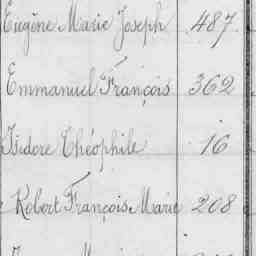 Eugène Marie Joseph 487
Emmanuel François 362
Isidore Théophile 16
Robert François Marie 208